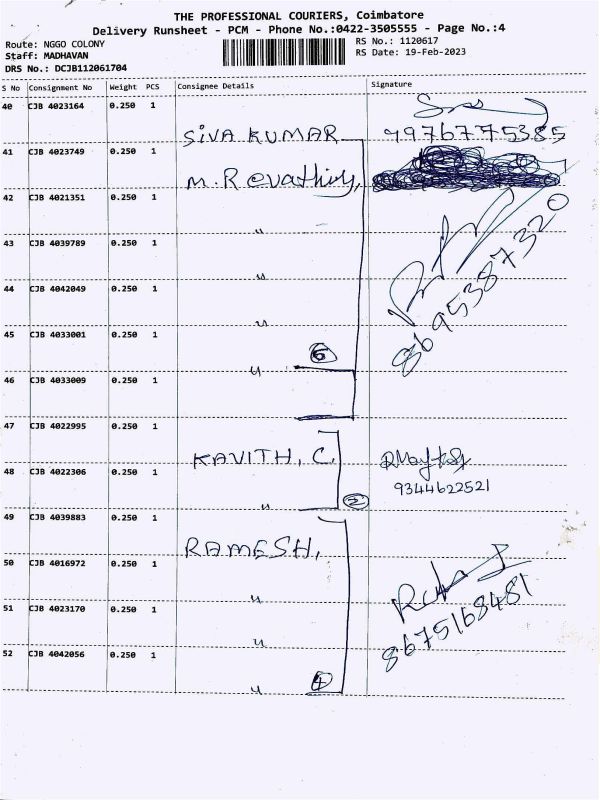 THE PROFESSIONAL COURIERS, Coimbatore
Delivery Runsheet - PCM - Phone No.:0422-3505555 - Page No.:4
Route: NGGO COLONY
RS No.: 1120617
Staff: MADHAVAN
RS Date: 19-Feb-2023
DRS No.: DCJB112061704
S No Consignment No Weight PCS Consignee Details Signature
40 CJB 4023164 0.250 1
SIVA KUMAR 9976775385
41 CJB 4023749 0.250 1
M. Revathy,
42 CJB 4021351 0.250 1
"
8695387320
43 CJB 4039789 0.250 1
"
44 CJB 4042049 0.250 1
"
45 CJB 4033001 0.250 1
6
"
46 CJB 4033009 0.250 1
47 CJB 4022995 0.250 1
KAVITH, C.
48 CJB 4022306 0.250 1
9344622521
" 2
49 CJB 4039883 0.250 1
RAMESH,
50 CJB 4016972 0.250 1
"
8675168481
51 CJB 4023170 0.250 1
"
52 CJB 4042056 0.250 1
" 4